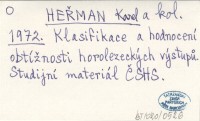 HEŘMAN Karel a kol.
1972. Klasifikace a hodnocení
obtížnosti horolezeckých výstupů.
Studijní materiál ČSHS.